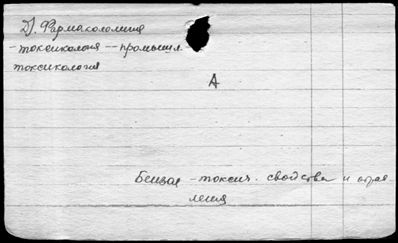 Д). Фармакология
- токсикология - промышл.
токсикология
А
Бензол - токсич. свойства и отрав
ления